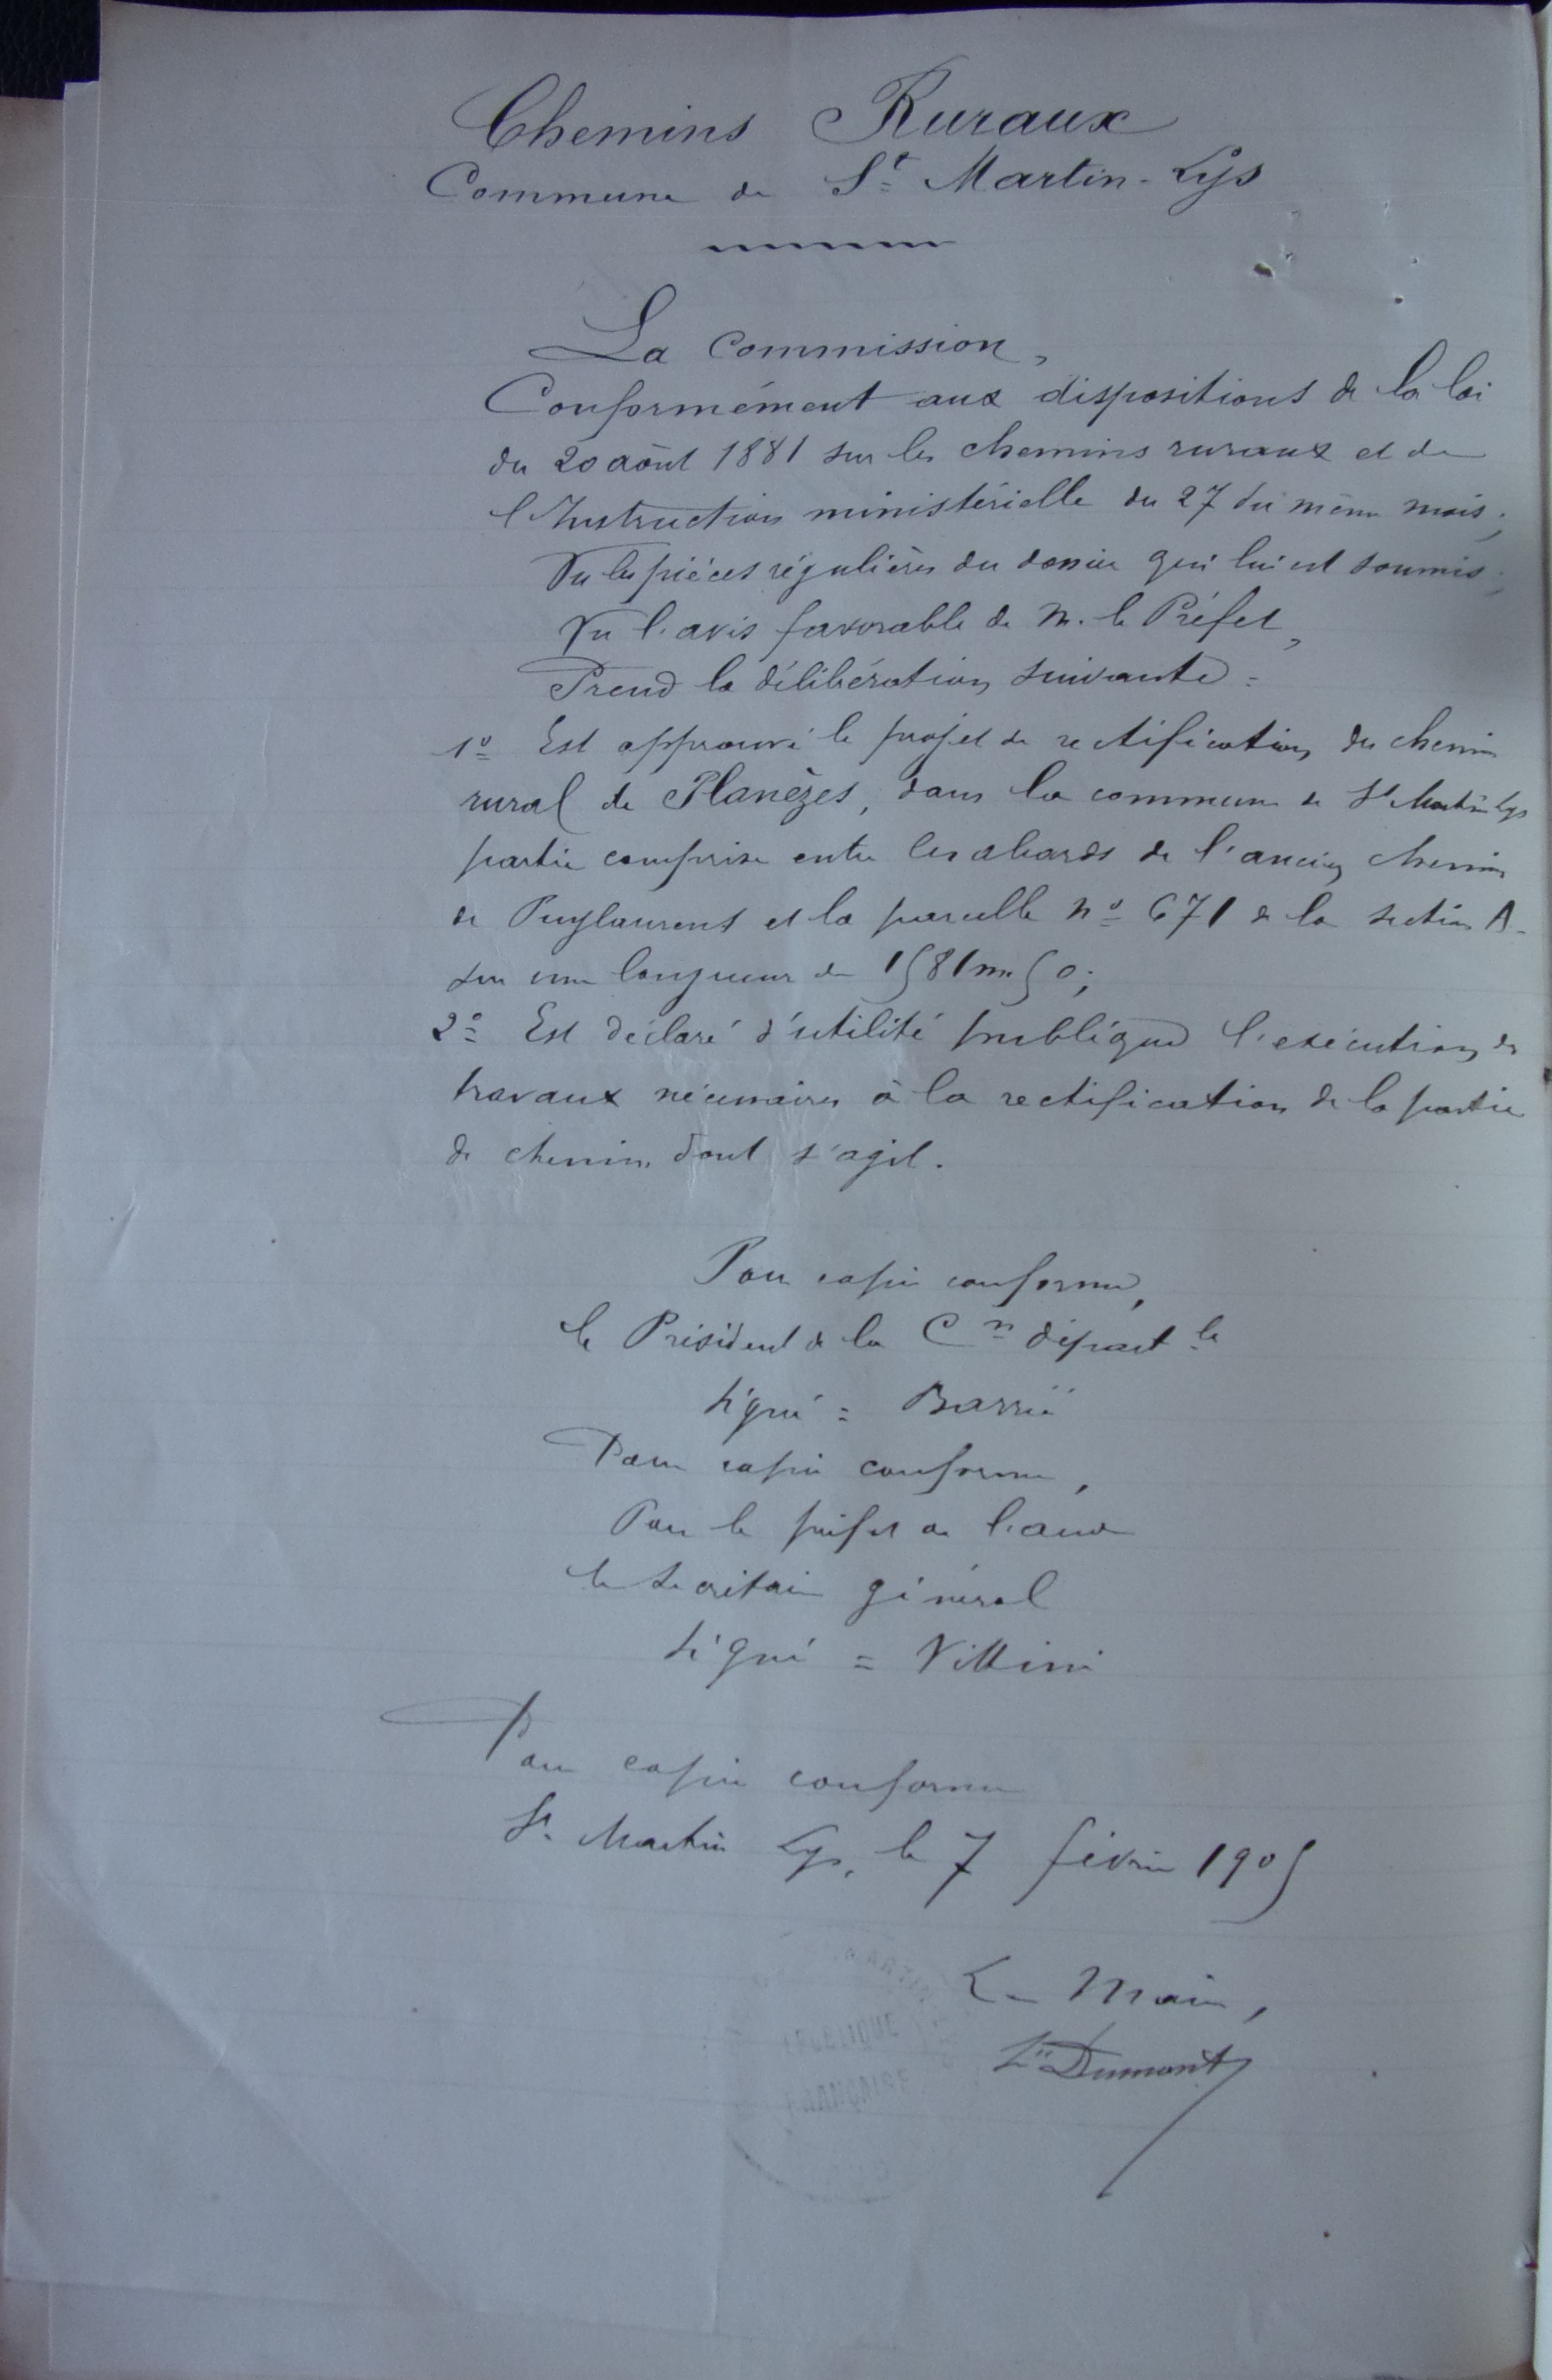 Chemins Ruraux
Commune de St Martin-Lys
La Commission,
Conformément aux dispositions de la loi
du 20 août 1881 sur les chemins ruraux et de
l'Instruction ministérielle du 27 du même mois;
Vu les pièces régulières du dossier qui lui est soumis;
Vu l'avis favorable de M. le Préfet,
Prend la délibération suivante =
1º Est approuvé le projet de rectification du chemin
rural de Planèzes, dans la commune de St Martin Lys
partie comprise entre les abords de l'ancien chemin
de Puylaurens et la parcelle nº 671 de la section A-
sur une longueur de 1581m50;
2º Est déclaré d'utilité publique l'exécution des
travaux nécessaires à la rectification de la partie
de chemin dont s'agit.
Pour copie conforme,
le Président de la Cn départle
signé = Barrié
Pour copie conforme,
Pour le préfet de l'aude
le secrétaire général
signé = Vittini
Pour copie conforme
St Martin Lys, le 7 février 1905
Le Maire,
Dumont